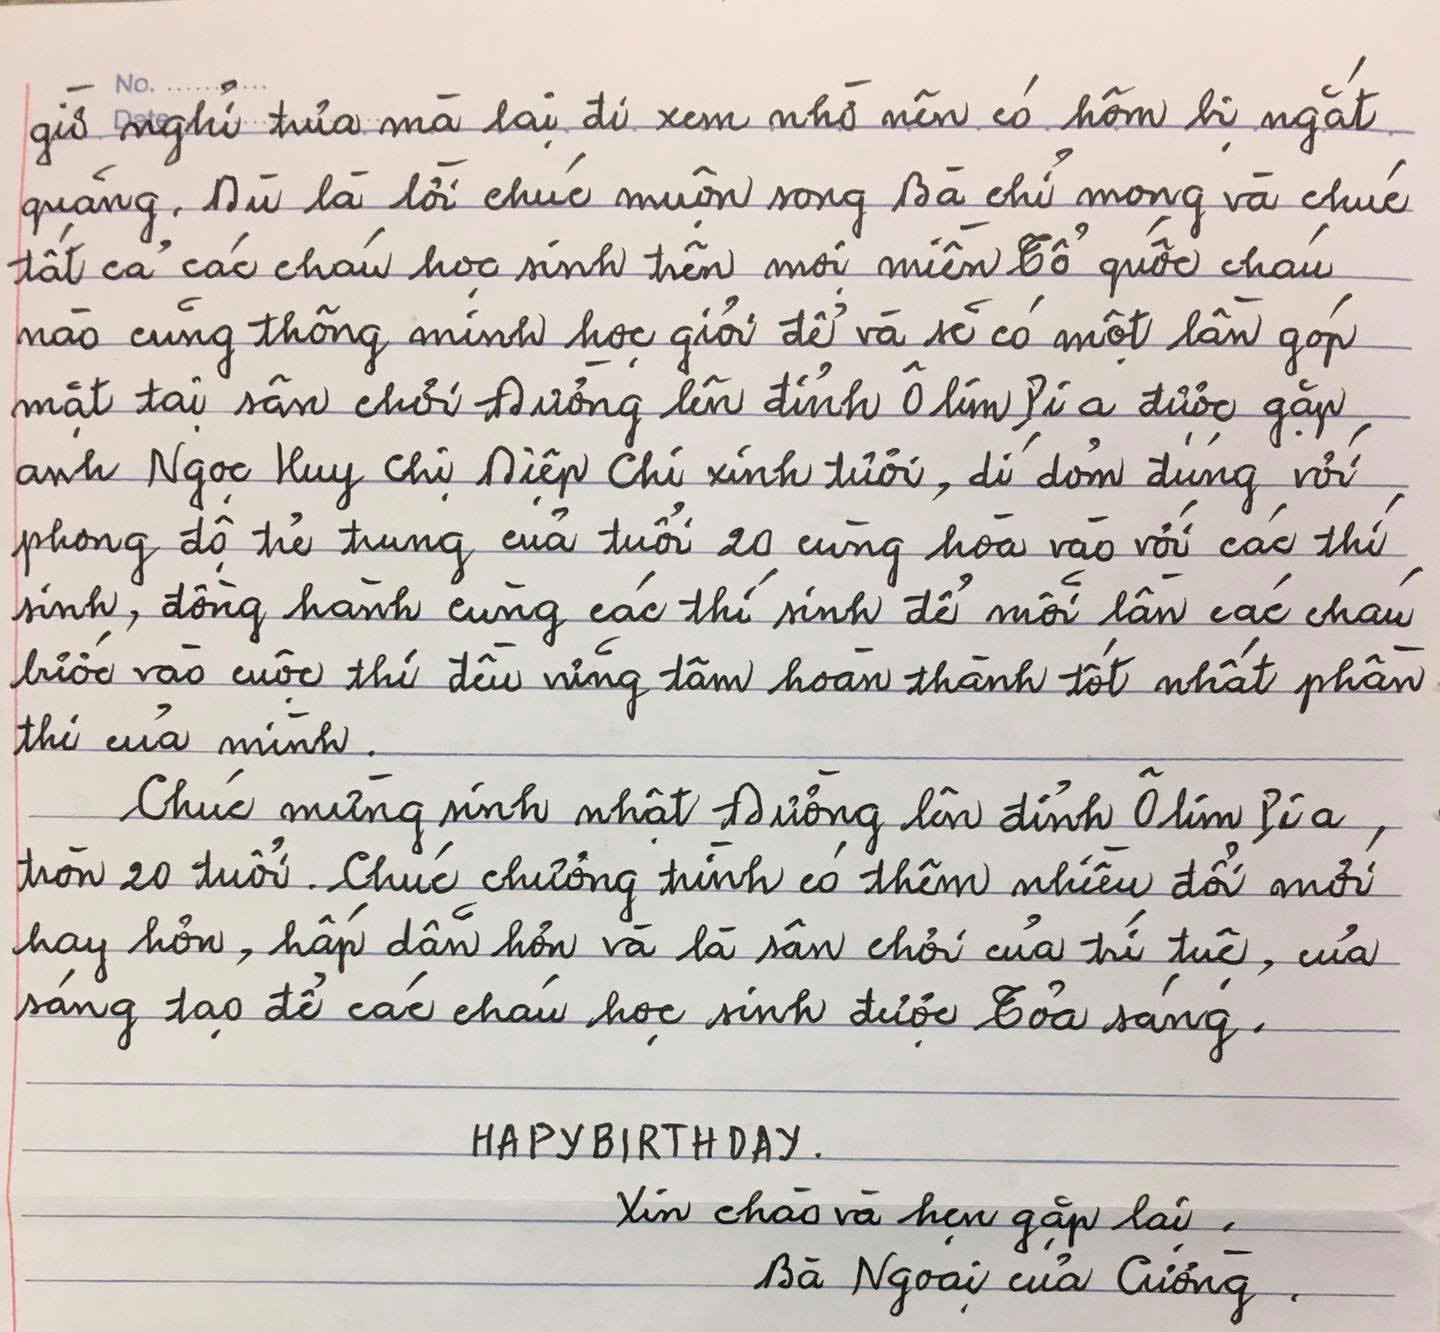 No. ............
Date
giờ nghỉ trưa mà lại đi xem nhờ nên có hôm bị ngắt
quãng. Dù là lời chúc muộn song Bà chỉ mong và chúc
tất cả các cháu học sinh trên mọi miền Tổ quốc cháu
nào cũng thông minh học giỏi để và sẽ có một lần góp
mặt tại sân chơi Đường lên đỉnh ÔlimPia được gặp
anh Ngọc Huy chị Diệp Chi xinh tươi, dí dỏm đúng với
phong độ trẻ trung của tuổi 20 cùng hoà vào với các thí
sinh, đồng hành cùng các thí sinh để mỗi lần các cháu
bước vào cuộc thi đều vững tâm hoàn thành tốt nhất phần
thi của mình.
Chúc mừng sinh nhật Đường lên đỉnh ÔlimPia,
tròn 20 tuổi. Chúc chương trình có thêm nhiều đổi mới
hay hơn, hấp dẫn hơn và là sân chơi của trí tuệ, của
sáng tạo để các cháu học sinh được Tỏa sáng.
HAPYBIRTHDAY.
Xin chào và hẹn gặp lại.
Bà Ngoại của Cường.